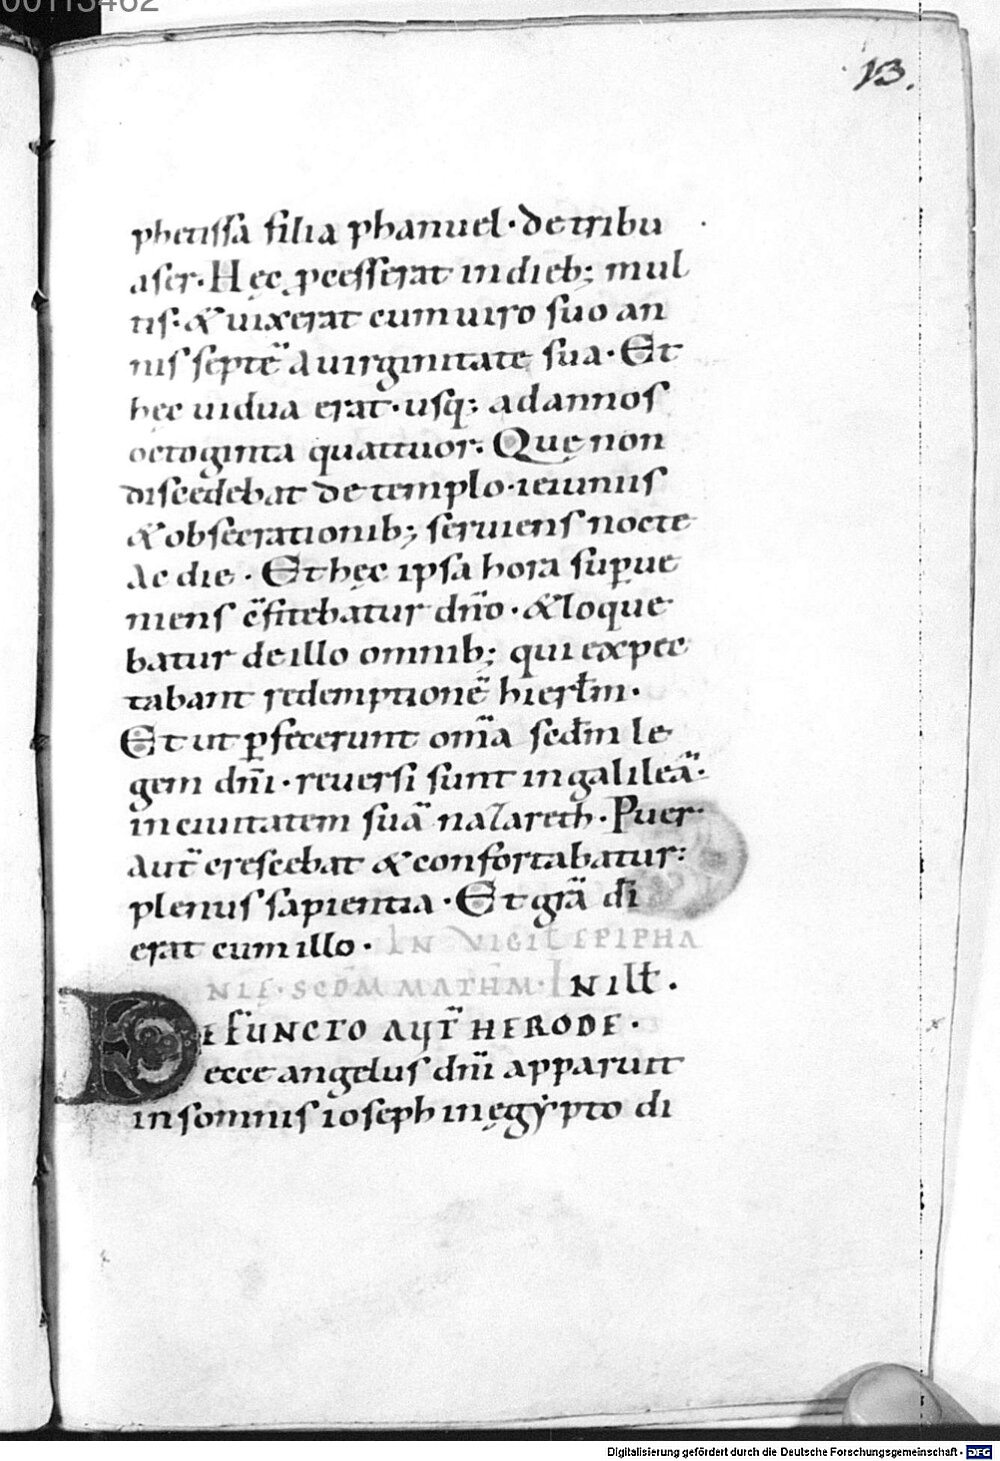 00113462
13.
phetissa filia phanuel · de tribu
aser · Hęc p̱cesserat in dieb; mul
tis · & uixerat cum uiro suo an
nis septē a uirginitate sua · Et
hęc uidua erat · usq; ad annos
octoginta quattuor. Quę non
discedebat de templo · ieiuniis
& obsecrationib; seruiens nocte
ac die · Et hęc ipsa hora sup̱ue
niens c̄fitebatur dn̄o · & loque
batur de illo omnib; qui expec
tabant redemptionē hierłm ·
Et ut ꝑfecerunt om̄a scd̄m le
gem dn̄i · reuersi sunt in galileā ·
in ciuitatem suā nazareth · Puer
aut̄ crescebat & confortabatur:
plenus sapientia · Et gr̄a dī
erat cum illo · IN VIGIL EPIPHA
NIĘ · SCD̄M MATHM̄ · IN ILŁ.
DEFUNCTO AUT̄ HERODE ·
ecce angelus dn̄i apparuit
in somnis ioseph in ęgẏpto di
Digitalisierung gefördert durch die Deutsche Forschungsgemeinschaft - DFG